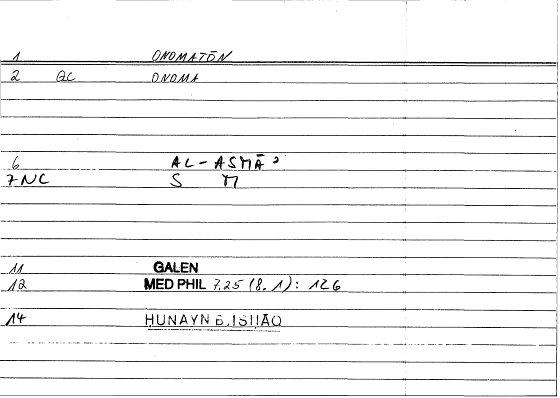 1 ONOMATŌN
2 GC ONOMA
6 AL-ASMĀʾ
7 NC S M
11 GALEN
12 MED PHIL 7.25 (8.1): 126
14 HUNAYN B. ISHAQ